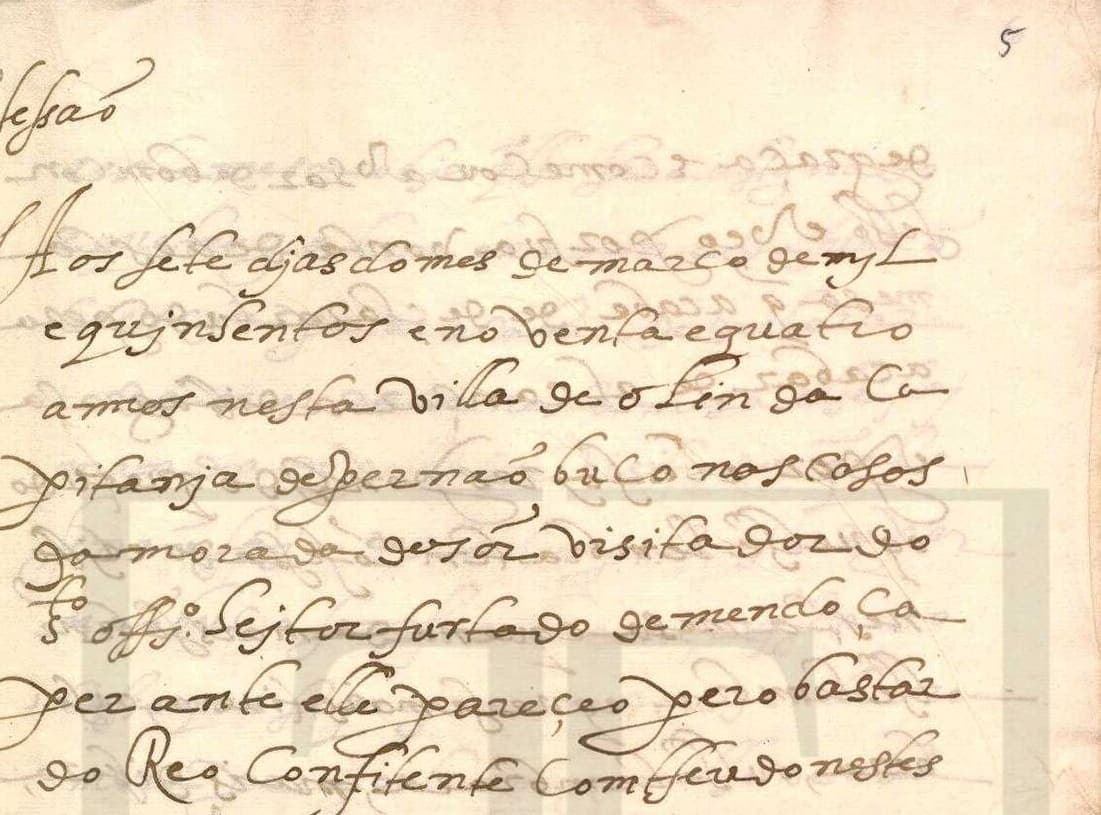 5
fessaõ
Aos sete djas do mes de março de mjL
e qujnhentos e noventa e quatro
annos nesta villa de oLinda Ca
pitanja de pernaõ buco nas casas
da morada do sõr visitador do
sto offjº. heitor furtado de mendoça
perante elle pareçeo pero bastar
do Reo Confitente Conteudo nestes